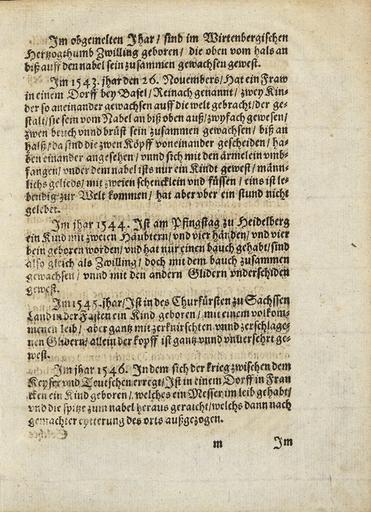 Im obgemelten Jhar / sind im Wirtenbergischen
Hertzogthumb Zwilling geboren / die oben vom hals an
biß auff den nabel sein zusammen gewachsen gewest.
Im 1543. jhar den 26. Nouembers / Hat ein Fraw
in einem Dorff bey Basel / Reinach genannt / zwey Kin-
der so aneinander gewachsen auff die welt gebracht / der ge-
stalt / sie sein vom Nabel an biß oben auß / zwyfach gewesen /
zwen beuch vnnd brüst sein zusammen gewachsen / biß an
halß / da sind die zwen Köpff voneinander gescheiden / ha-
ben einander angesehen / vnnd sich mit den ärmelein vmb-
fangen / vnder dem nabel ists nur ein Kindt gewest / männ-
lichs gelieds / mit zweien schencklein vnd füssen / eins ist le-
bendig zur Welt kommen / hat aber vber ein stund nicht
gelebet.
Im jhar 1544. Ist am Pfingstag zu Heidelberg
ein Kind mit zweien Häubtern / vnd vier händen / vnd vier
bein geboren worden / vnd hat nur einen bauch gehabt / sind
also gleich als Zwilling / doch mit dem bauch zusammen
gewachsen / vnnd mit den andern Glidern vnderschiden
gewest.
Im 1545. jhar / Ist in des Churfürsten zu Sachssen
Land in der Fasten ein Kind geboren / mit einem volkom-
menen leib / aber gantz mit zerknirschten vnnd zerschlage-
nen Glidern / allein der kopff ist gantz vnnd vnuersehrt ge-
west.
Im jhar 1546. In dem sich der krieg zwischen dem
Keyser vnd Teutschen erregt / Ist in einem Dorff in Fran
cken ein Kind geboren / welches ein Messer im leib gehabt /
vnd die spitz zum nabel heraus geraicht / welchs dann nach
gemachter eytterung des orts außgezogen.
m Im